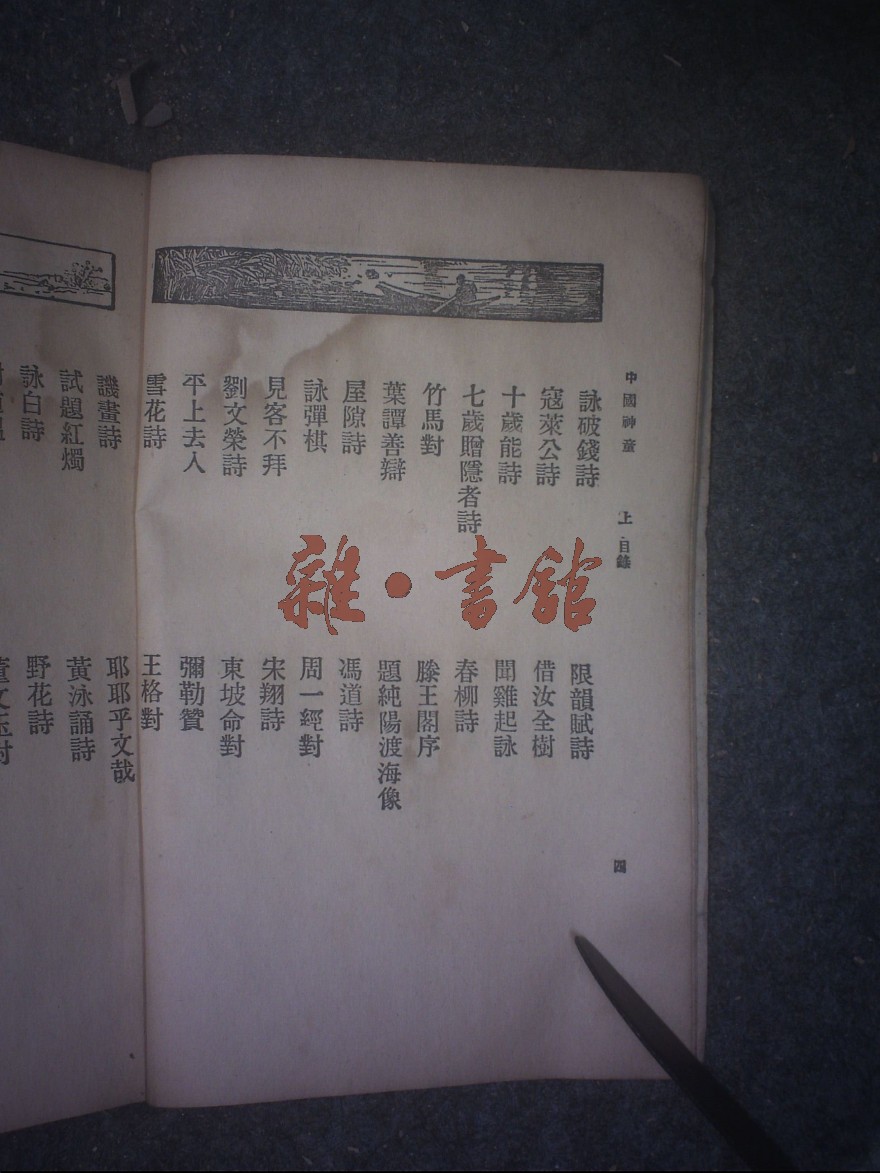 中國神童 上 目錄 四
詠破錢詩
寇萊公詩
十歲能詩
七歲贈隱者詩
竹馬對
葉譚善辯
屋隙詩
詠彈棋
見客不拜
劉文榮詩
平上去入
雪花詩
限韻賦詩
借汝全樹
聞雞起詠
春柳詩
滕王閣序
題純陽渡海像
馮道詩
周一經對
宋翔詩
東坡命對
彌勒贊
王格對
譏畫詩
試題紅燭
詠白詩
耶耶乎文哉
黃泳誦詩
野花詩
雜·書館